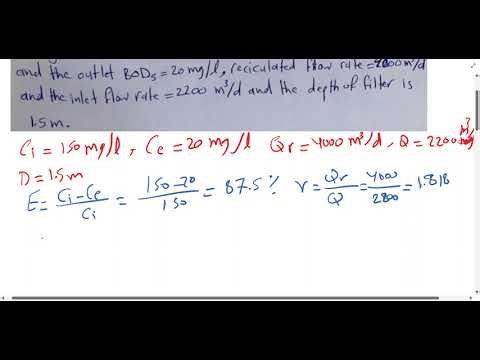 and the outlet BOD5 = 20 mg/l, reciculated flow rate = 4000 m³/d
and the inlet flow rate = 2200 m³/d and the depth of filter is
1.5 m.
Ci = 150 mg/l , Ce = 20 mg/l Qr = 4000 m³/d , Q = 2200 m³/d
D = 1.5 m
E = Ci - Ce / Ci = 150 - 20 / 150 = 87.5 % r = Qr / Q = 4000 / 2200 = 1.818